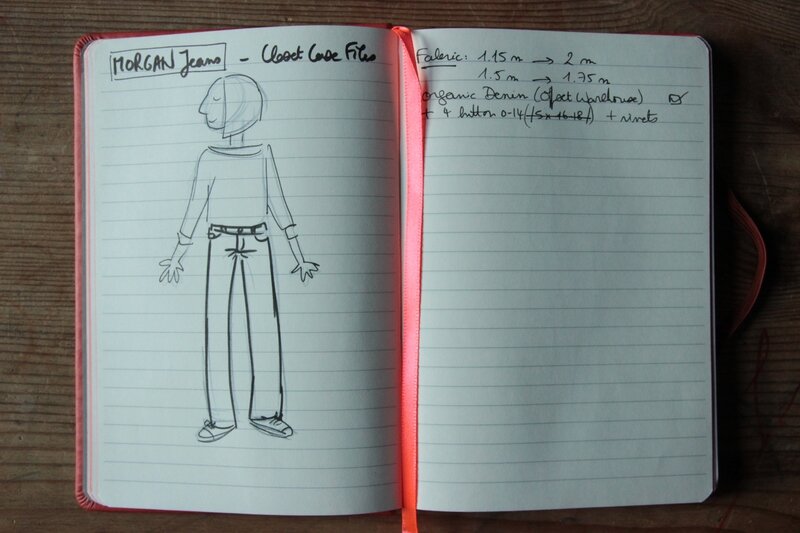 MORGAN Jeans - Closet Case Files
Fabric: 1.15 m → 2 m
1.5 m → 1.75 m
organic Denim (Offset Warehouse) ☑
+ 4 button 0-14 (/5 x 16-18/) + rivets